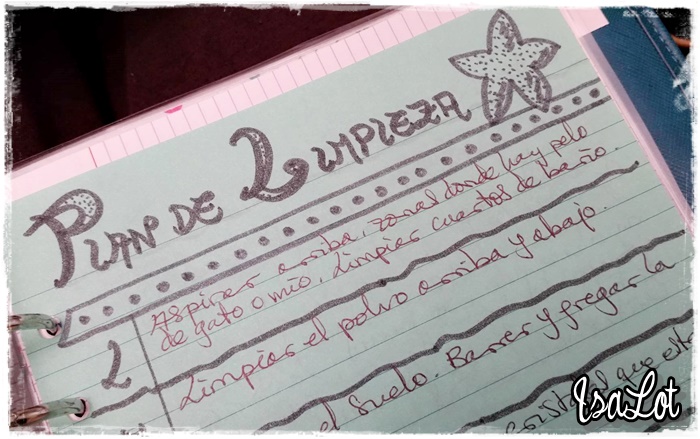 PLAN DE LIMPIEZA
L
Aspirar arriba, zonas donde hay pelo
de gato o mío. Limpiar cuartos de baño.
Limpiar el polvo arriba y abajo.
el suelo. Barrer y fregar la
cristal que está
IsaLot